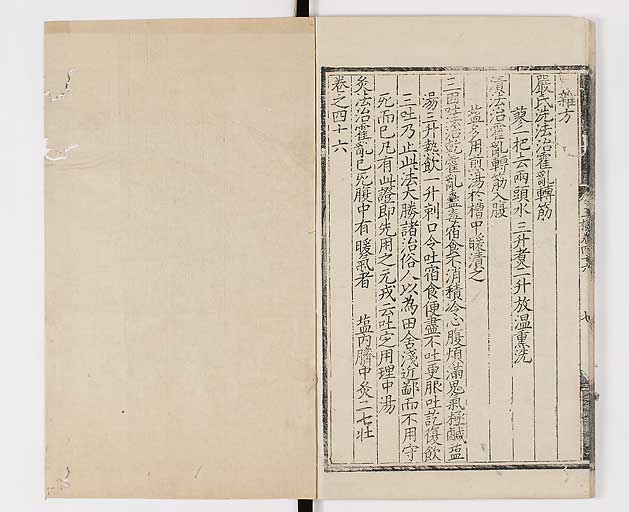 雜方
嚴氏洗法治霍亂轉筋
蓼一把去兩頭水三升煑二升放溫熏洗
漬法治霍亂轉筋入腹
塩多用煎湯於槽中暖漬之
三因吐法乾霍亂蠱毒宿食不消積冷心腹煩滿鬼氣極鹹塩
湯三升熱飲一升刺口令吐宿食便盡不吐更服吐訖復飲
三吐乃止此法大勝諸治俗人以為田舍淺近鄙而不用守
死而已凡有此證即先用之元戎云吐定用理中湯
灸法治霍亂已死腹中有暖氣者 塩內臍中灸二七壯
卷之四十六